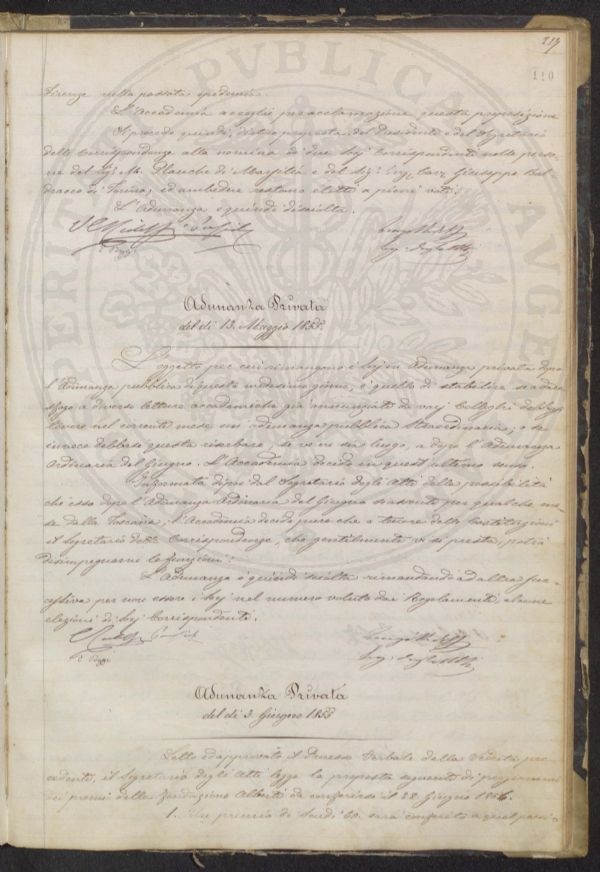 217
110
Firenze nella passata
L'Accademia accoglie per acclamazione questa proposizione
Si procede quindi, dietro proposta del Presidente e del Segretario
delle Corrispondenze alla nomina di due Socj Corrispondenti nelle perso-
ne del Sig. M. Planche di Marsilia e del Sig. Giuseppe
di Torino; ed ambedue restano eletti a pieni voti.
L'Adunanza è quindi disciolta.
Adunanza Privata
del dì 13. Maggio 1855.
L'oggetto per cui rimangono i Socj in Adunanza privata dopo
l'Adunanza pubblica di questo medesimo giorno, è quello di stabilire se a dare
sfogo a diverse letture accademiche già annunziate da varj Colleghi debbasi
tenere nel corrente mese un'adunanza pubblica straordinaria; o se
invece debbasi questa riserbare, se ve ne sia luogo, a dopo l'Adunanza
Ordinaria del Giugno. L'Accademia decide in quest'ultimo senso.
Informata dipoi dal Segretario degli Atti della possibilità
che esso dopo l'Adunanza Ordinaria del Giugno per qualche me-
se dalla Toscana, l'Accademia decide pure che a tenore delle Costituzioni
il Segretario delle Corrispondenze, che gentilmente vi si presta, potrà
disimpegnarne le funzioni.
L'Adunanza è quindi sciolta rimandando ad altra suc-
cessiva per non essere i Socj nel numero voluto dai Regolamenti, alcune
elezioni di Socj Corrispondenti.
Adunanza Privata
del dì 3. Giugno 1855
Letto ed approvato il Processo Verbale della Seduta pre-
cedente, il Segretario degli Atti legge la proposta seguente di programma
dei premi della Fondazione Alberti da conferirsi il 28 Giugno 1856.
1. Un premio di Scudi 60. sarà conferito a quel